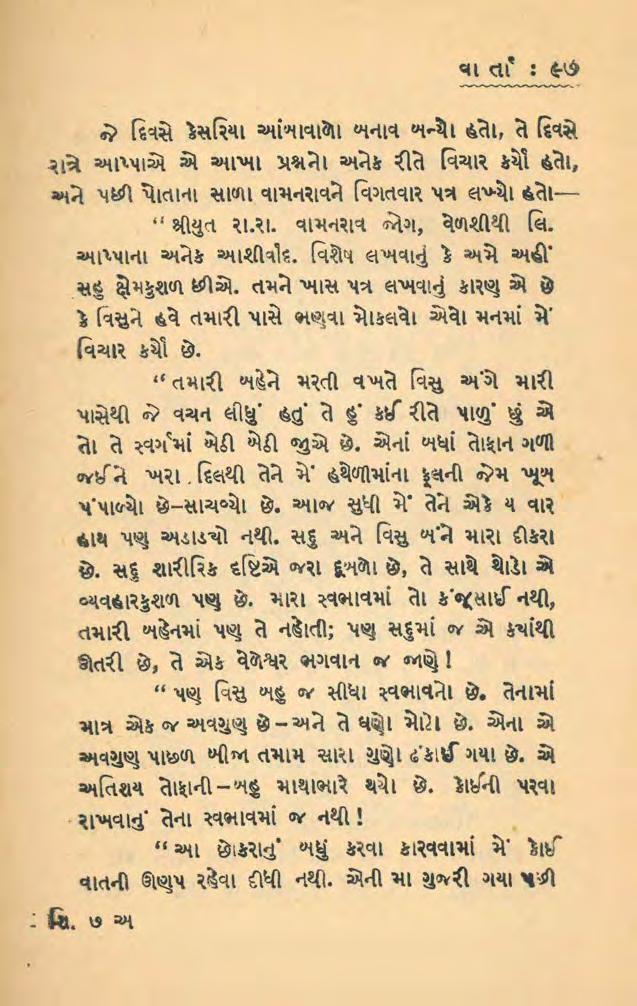 વા ર્તા : ૯૭
જે દિવસે કેસરિયા આંબાવાળો બનાવ બન્યો હતો, તે દિવસે
રાત્રે આપ્પાએ એ આખા પ્રશ્નનો અનેક રીતે વિચાર કર્યો હતો,
અને પછી પોતાના સાળા વામનરાવને વિગતવાર પત્ર લખ્યો હતો—
“ શ્રીયુત રા.રા. વામનરાવ જોગ, વેળશીથી લિ.
આપ્પાના અનેક આશીર્વાદ. વિશેષ લખવાનું કે અમે અહીં
સહુ ક્ષેમકુશળ છીએ. તમને ખાસ પત્ર લખવાનું કારણ એ છે
કે વિસુને હવે તમારી પાસે ભણવા મોકલવો એવો મનમાં મેં
વિચાર કર્યો છે.
“ તમારી બહેને મરતી વખતે વિસુ અંગે મારી
પાસેથી જે વચન લીધું હતું તે હું કઈ રીતે પાળું છું એ
તો તે સ્વર્ગમાં બેઠી બેઠી જુએ છે. એનાં બધાં તોફાન ગળી
જઈને ખરા દિલથી તેને મેં હથેળીમાંના ફૂલની જેમ ખૂબ
પંપાળ્યો છે–સાચવ્યો છે. આજ સુધી મેં તેને એકે ય વાર
હાથ પણ અડાડચો નથી. સદુ અને વિસુ બંને મારા દીકરા
છે. સદુ શારીરિક દૃષ્ટિએ જરા દૂબળો છે, તે સાથે થોડો એ
વ્યવહારકુશળ પણ છે. મારા સ્વભાવમાં તો કંજૂસાઈ નથી,
તમારી બહેનમાં પણ તે નહોતી; પણ સદુમાં જ એ કચાંથી
ઊતરી છે, તે એક વેળેશ્વર ભગવાન જ જાણે !
“ પણ વિસુ બહુ જ સીધા સ્વભાવનો છે. તેનામાં
માત્ર એક જ અવગુણ છે – અને તે ઘણો મોટો છે. એના એ
અવગુણ પાછળ બીજા તમામ સારા ગુણો ઢંકાઈ ગયા છે. એ
અતિશય તોફાની – બહુ માથાભારે થયો છે. કોઈની પરવા
રાખવાનું તેના સ્વભાવમાં જ નથી !
“ આ છોકરાનું બધું કરવા કારવવામાં મેં કોઈ
વાતની ઊણપ રહેવા દીધી નથી. એની મા ગુજરી ગયા પછી
શિ. ૭ અ